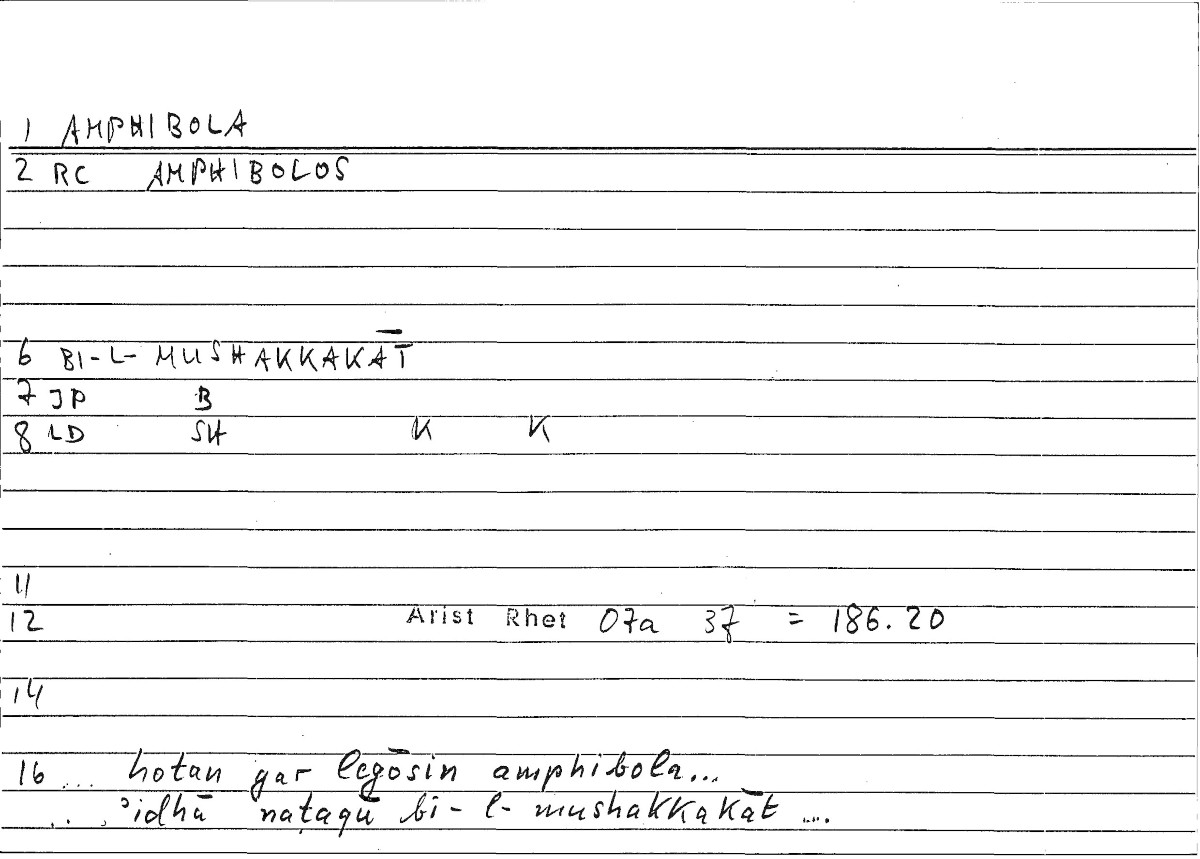 1 AMPHIBOLA
2 RC AMPHIBOLOS
6 BI-L- MUSHAKKAKĀT
7 JP B
8 LD SH K K
11
12 Arist Rhet 07a 37 = 186.20
14
16 ... hotan gar legōsin amphibola...
... ʾidhā naṭaqū bi-l-mushakkakāt ...